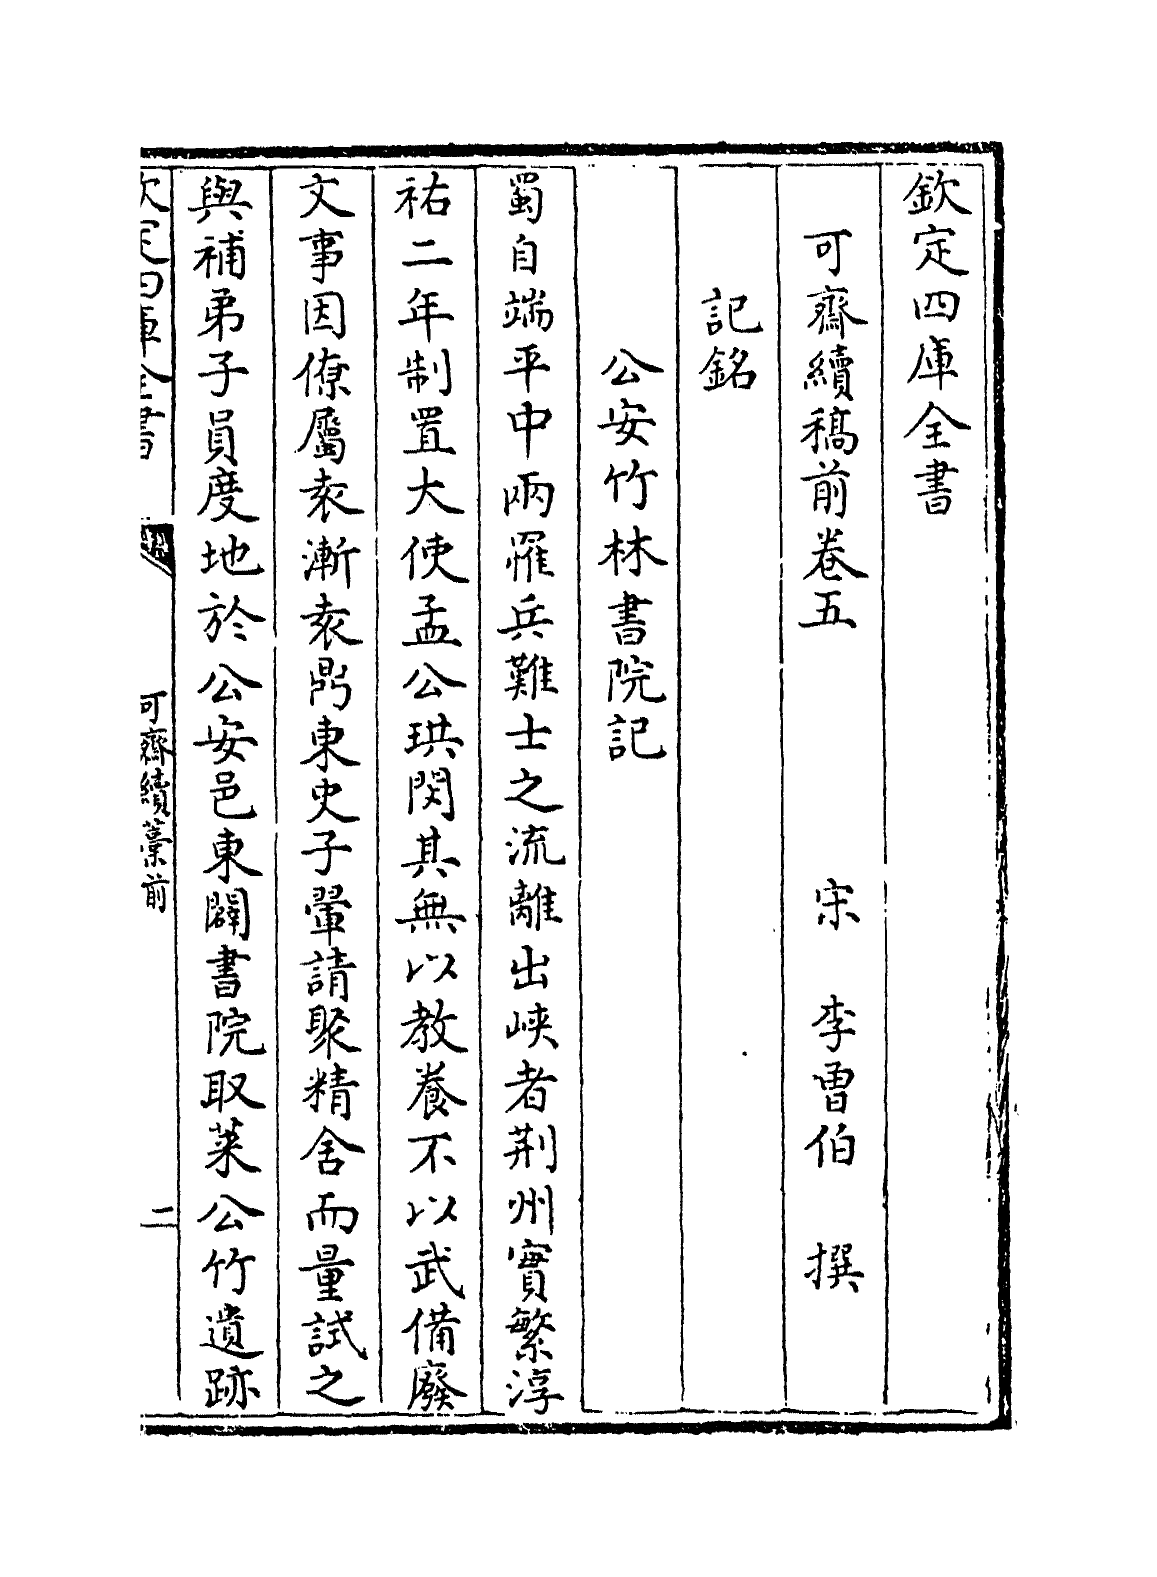 欽定四庫全書
可齋續稿前卷五
宋 李曽伯 撰
記銘
公安竹林書院記
蜀自端平中兩罹兵難士之流離出峡者荆州實繁淳
祐二年制置大使孟公珙閔其無以教養不以武備廢
文事因僚屬袁漸袁鼎東史子翬請聚精舍而量試之
與補弟子員度地於公安邑東闢書院取萊公竹遺跡
欽定四庫全書
可齋續藁前
二